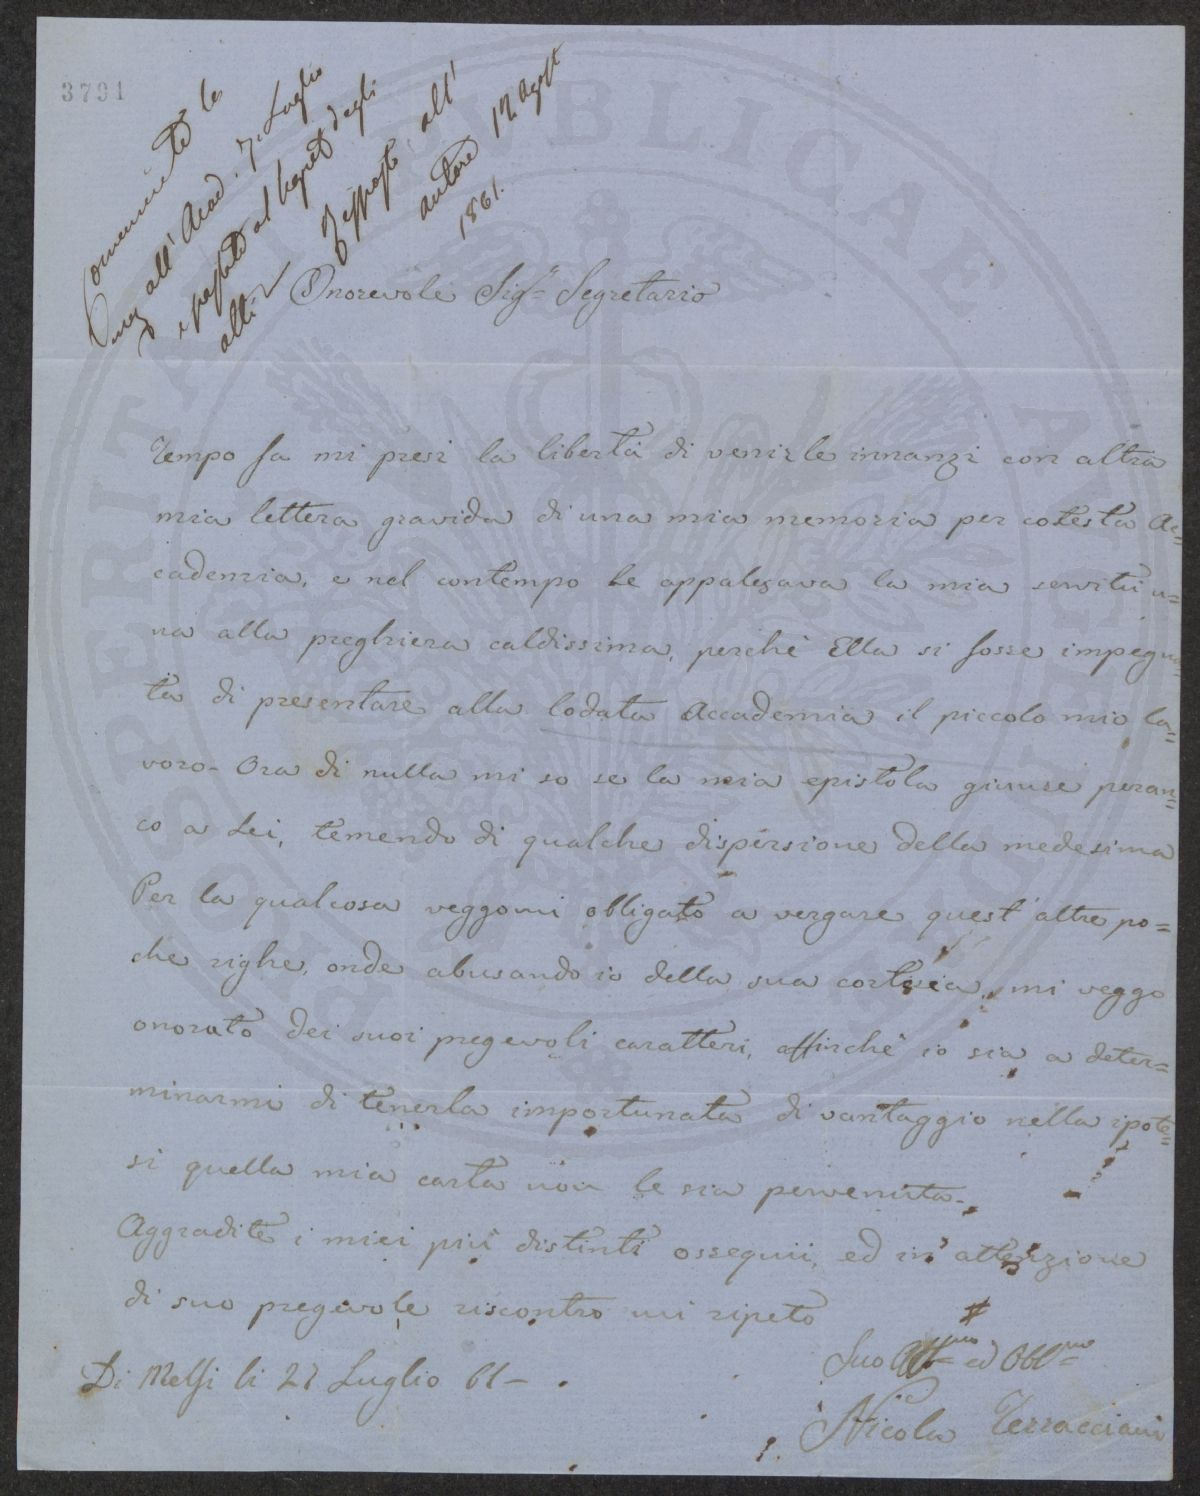 3791
Onorevole Sig.r Segretario
Tempo fa mi presi la libertà di venirle innanzi con altra
mia lettera gravida di una mia memoria per cotesta Ac=
cademia, e nel contempo Le appalesava la mia servitù u=
na alla preghiera caldissima, perchè Ella si fosse impegna
ta di presentare alla lodata Accademia il piccolo mio la=
voro- Ora di nulla mi so se la mia epistola giunse peran=
co a Lei, temendo di qualche dispersione della medesima
Per la qualcosa veggomi obbligato a vergare quest'altre po=
che righe, onde abusando io della sua cortesia, mi veggo
onorato dei suoi pregevoli caratteri, affinchè io sia a deter=
minarmi di tenerla importunata di vantaggio nella ipote=
si quella mia carta non le sia pervenuta-
Aggradite i miei più distinti ossequii, ed in attenzione
di suo pregevole riscontro mi ripeto
Suo ed Obbl.mo
Di Melfi li 27 Luglio 61-
Nicola Terracciani
all' Acad. 7 Luglio
degli
atti
Risposto all'
autore 12 Agost
1861.
PROSPERITATI PVBLICAE AVGENDAE